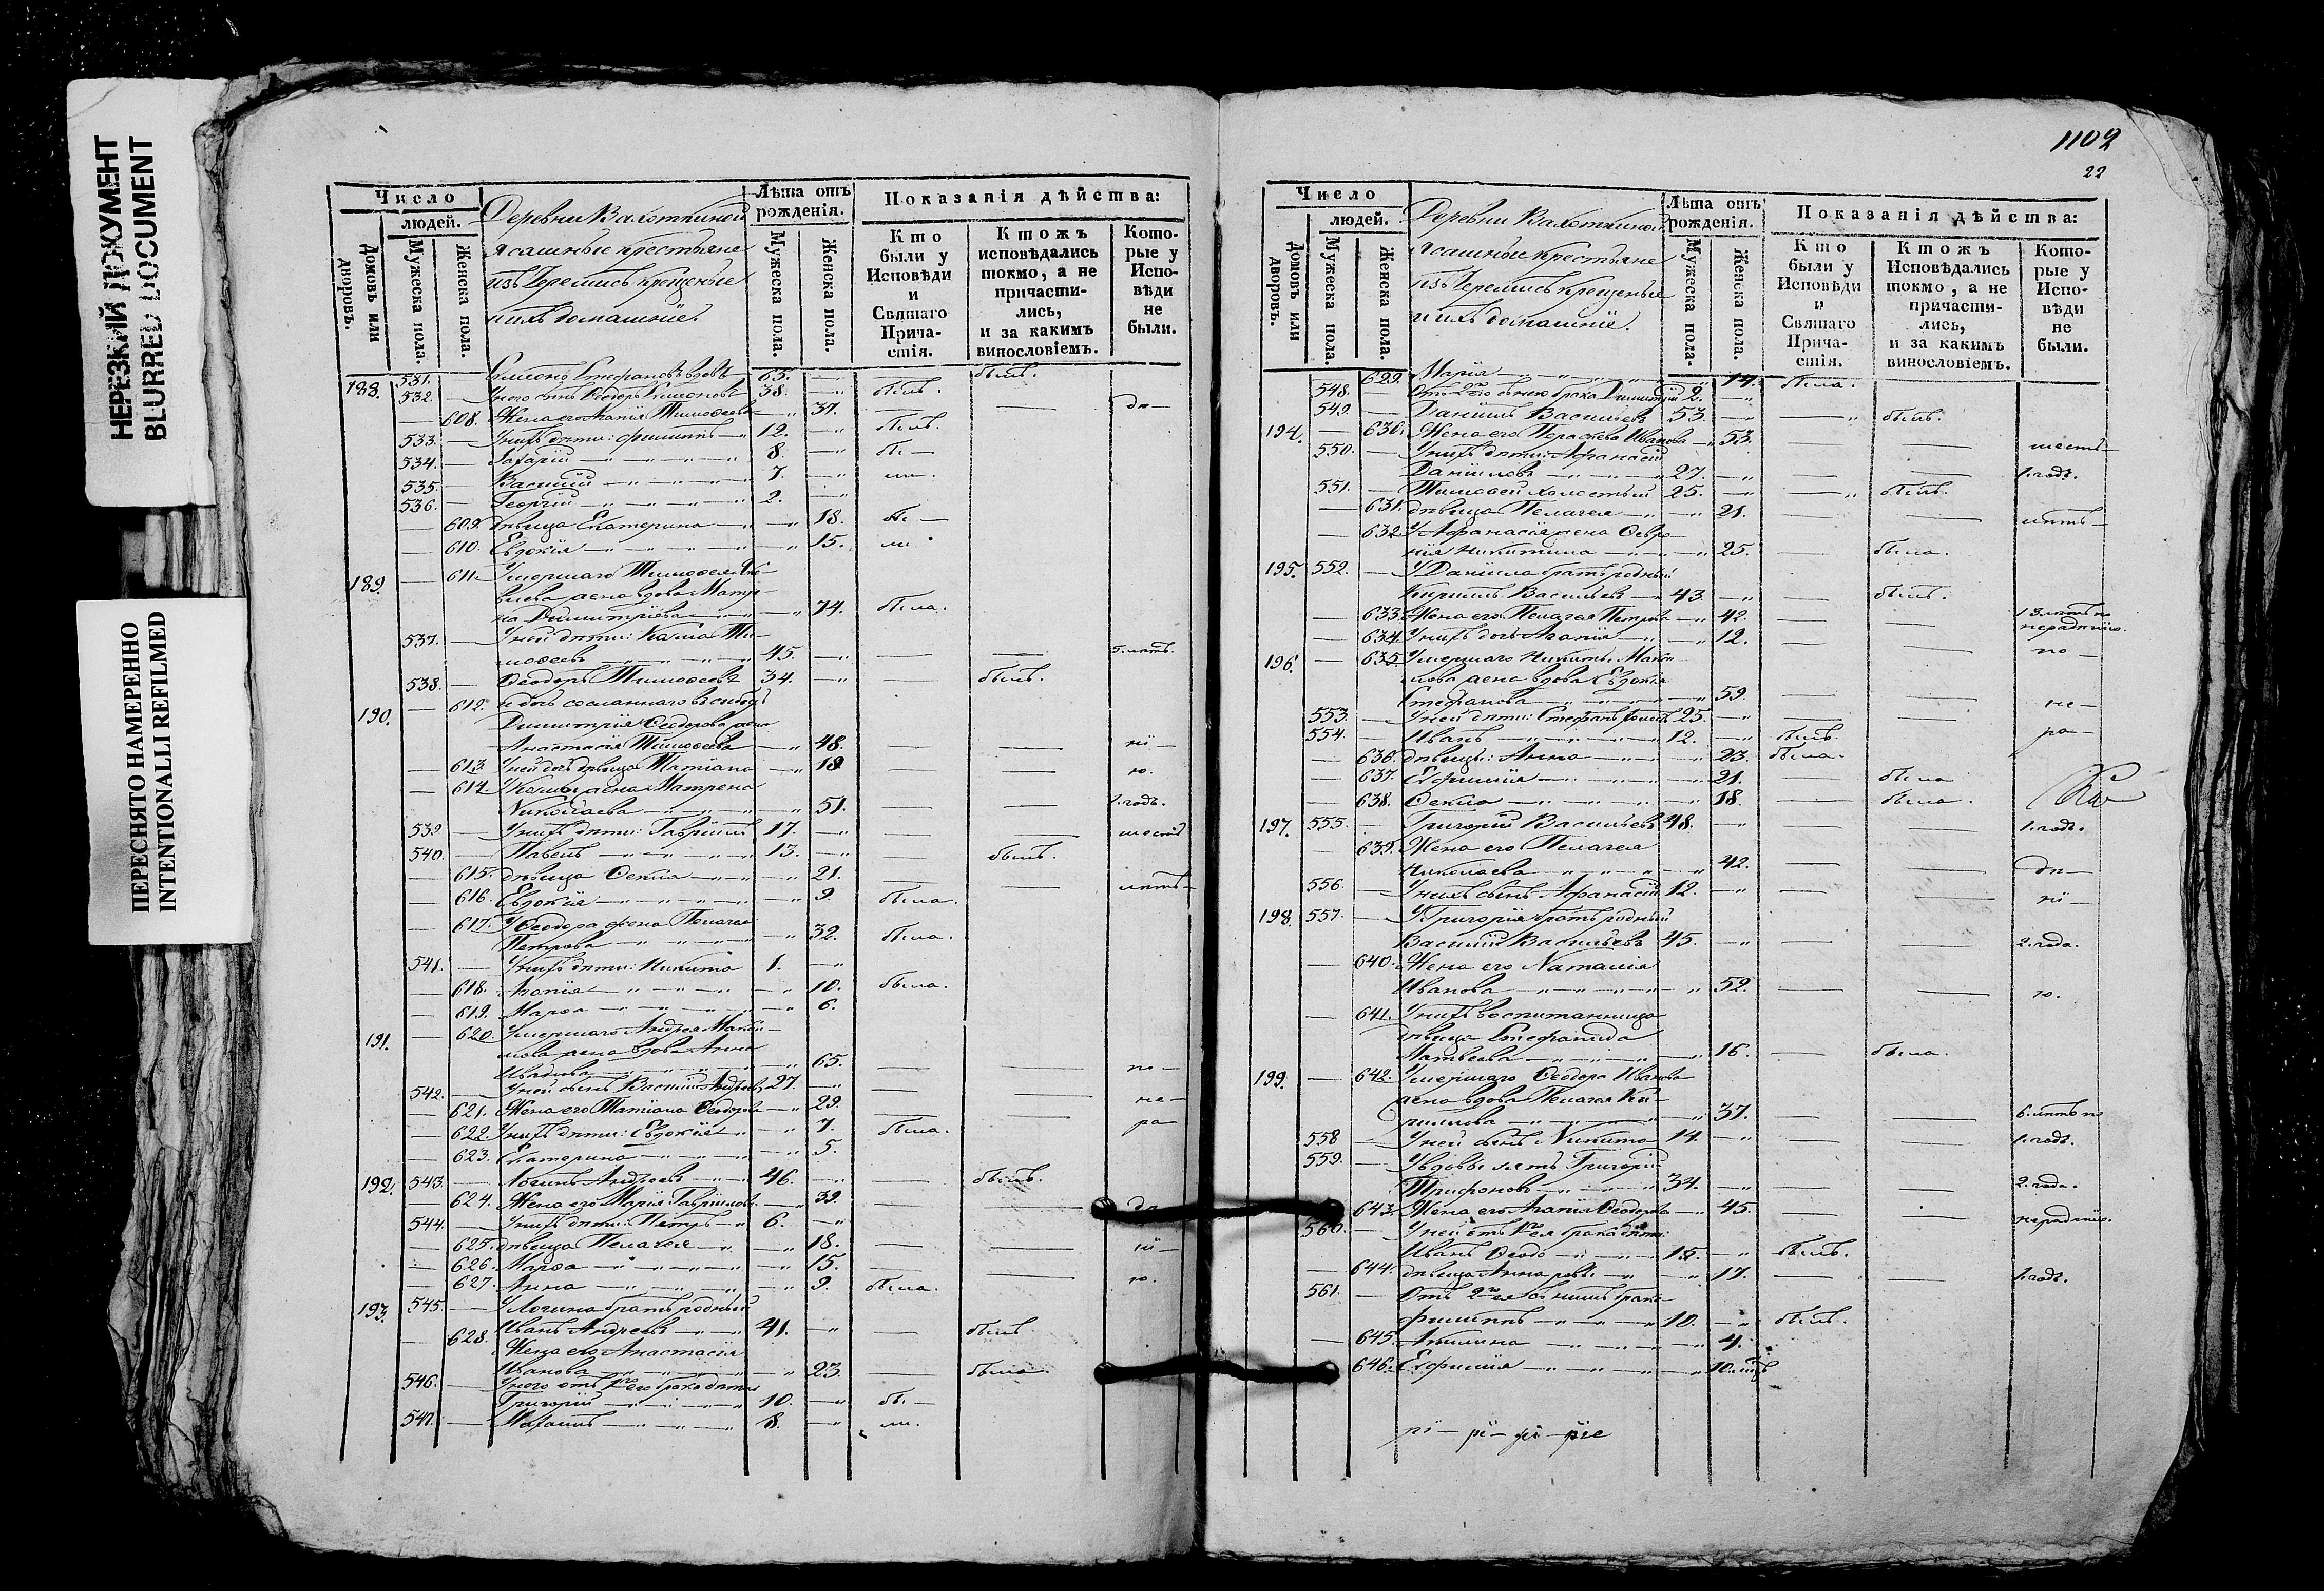 НЕРЕЗКИЙ ДОКУМЕНТ
BLURRED DOCUMENT
ПЕРЕСНЯТО НАМЕРЕННО
INTENTIONALLI REFILMED
Число
людей.
Домовъ или дворовъ.
Мужеска пола.
Женска пола.
Деревни Вахоткиной
ясашные крестьяне
изъ Черемисъ крещеные
и ихъ домашніе.
Лѣта отъ рожденія.
Мужеска пола.
Женска пола.
Показанія дѣйства:
Кто были у Исповѣди и Святаго Причастія.
Ктожъ исповѣдались токмо, а не причастились, и за какимъ винословіемъ.
Которые у Исповѣди не были.
188. 531. Симеонъ Стефановъ вдовъ 65. былъ.
532. У него сынъ Ѳеодоръ Симеоновъ 38. былъ.
608. Жена его Агапія Тимоѳеева 37.
533. У нихъ дѣти: Филиппъ 12. былъ.
534. Захарій 8. бы
535. Василій 7. ли.
536. Георгій 2.
609. Дѣвица Екатерина 18. бы
610. Евдокія 15. ли
189. 611. Умершаго Тимоѳея
жена вдова Матре
на Димитріева 74. была.
537. У ней дѣти: Козма Ти
моѳеевъ 45. 5. лѣтъ.
538. Ѳеодоръ Тимоѳеевъ 34. былъ.
190. 612. и дочь сосланнаго въ сибирь
Димитрія Ѳеодорова жена
Анастасія Тимоѳеева 48. ні
613. У ней дочь дѣвица Татіана 18. ю.
614. У Козмы жена Матрена
Николаева 51. 1. годъ.
539. У нихъ дѣти: Гавріилъ 17. шесть
540. Павелъ 13. былъ.
615. дѣвица Ѳекла 21.
616. Евдокія 9. была. лѣтъ
617. У Ѳеодора жена Пелагея
Петрова 32. была.
541. У нихъ дѣти: Никита 1.
618. Агапія 10. была.
619. Марѳа 6.
191. 620. Умершаго Андрея Макси
мова жена вдова Анна
Иванова 65. по
542. У ней сынъ Василій Андреевъ 27. не
621. Жена его Татіана Ѳеодорова 29.
622. У нихъ дѣти: Евдокія 7. была. ра
623. Екатерина 5.
192. 543. Логинъ Андреевъ 46. былъ.
624. Жена его Марія Гавріилова 39.
544. У нихъ дѣти: Петръ 6. дѣ
625. дѣвица Пелагея 18. ні
626. Марѳа 15.
627. Анна 9. была. ю.
193. 545. У Логина братъ родный
Иванъ Андреевъ 41. былъ
628. Жена его Анастасія
Иванова 23. была.
546. У него отъ 1го его брака дѣти
Григорій 10. бы
547. Михаилъ 8. ли.
1102
22
Число
людей.
Домовъ или дворовъ.
Мужеска пола.
Женска пола.
Деревни Вахоткиной
ясашные крестьяне
изъ Черемисъ крещеные
и ихъ домашніе.
Лѣта отъ рожденія.
Мужеска пола.
Женска пола.
Показанія дѣйства:
Кто были у Исповѣди и Святаго Причастія.
Ктожъ Исповѣдались токмо, а не причастились, и за какимъ винословіемъ.
Которые у Исповѣди не были.
629. Марія 14. была.
548. Отъ 2го съ нею брака Димитрій 2.
194. 549. Даніилъ Васильевъ 53. былъ.
630. Жена его Параскева Иванова 53. шесть
550. У нихъ дѣти: Афанасій
Даніиловъ 27. 1. годъ.
551. Тимоѳей холостый 25. былъ.
631. дѣвица Пелагея 21. лѣтъ
632. У Афанасія жена Ѳевро
нія Никитина 25. была.
195. 552. У Даніила братъ родный
Кириллъ Васильевъ 43. былъ.
633. Жена его Пелагея Петрова 42. лѣтъ по
634. У нихъ дочь Агапія 12. нерадѣнію.
196. 635. Умершаго Никиты Макси
мова жена вдова Евдокія по
Стефанова 59. не
553. У ней дѣти: Стефанъ холост. 25.
554. Иванъ 12. былъ. ра
636. дѣвицы: Анна 23. была.
637. Евфимія 21. была
638. Ѳекла 18. была.
197. 555. Григорій Васильевъ 48. 1. годъ.
639. Жена его Пелагея
Николаева 42. дѣ
556. У нихъ сынъ Афанасій 12. ні
198. 557. У Григорія братъ родный
Василій Васильевъ 45. 2. года.
640. Жена его Наталія
Иванова 52. ю.
641. У нихъ воспитанница
дѣвица Стефанида
Матвеева 16. была.
199. 642. Умершаго Ѳеодора Иванова
жена вдова Пелагея Ки
риллова 37. 6. лѣтъ по
558 У ней сынъ Никита 14. 1. годъ.
559. У вдовы зять Григорій
Трифоновъ 34. 2. года.
643. Жена его Агапія Ѳеодорова 45. нерадѣнію.
560. У ней отъ 1го ея брака дѣти:
Иванъ Ѳеодо 15. былъ.
644. дѣвица Анна ровы 17. 1. годъ.
561. Отъ 2го ея съ нимъ брака
Филиппъ 10. былъ.
645 Акилина 4.
646. Евфимія 10.
рі – рі – рі – ріе